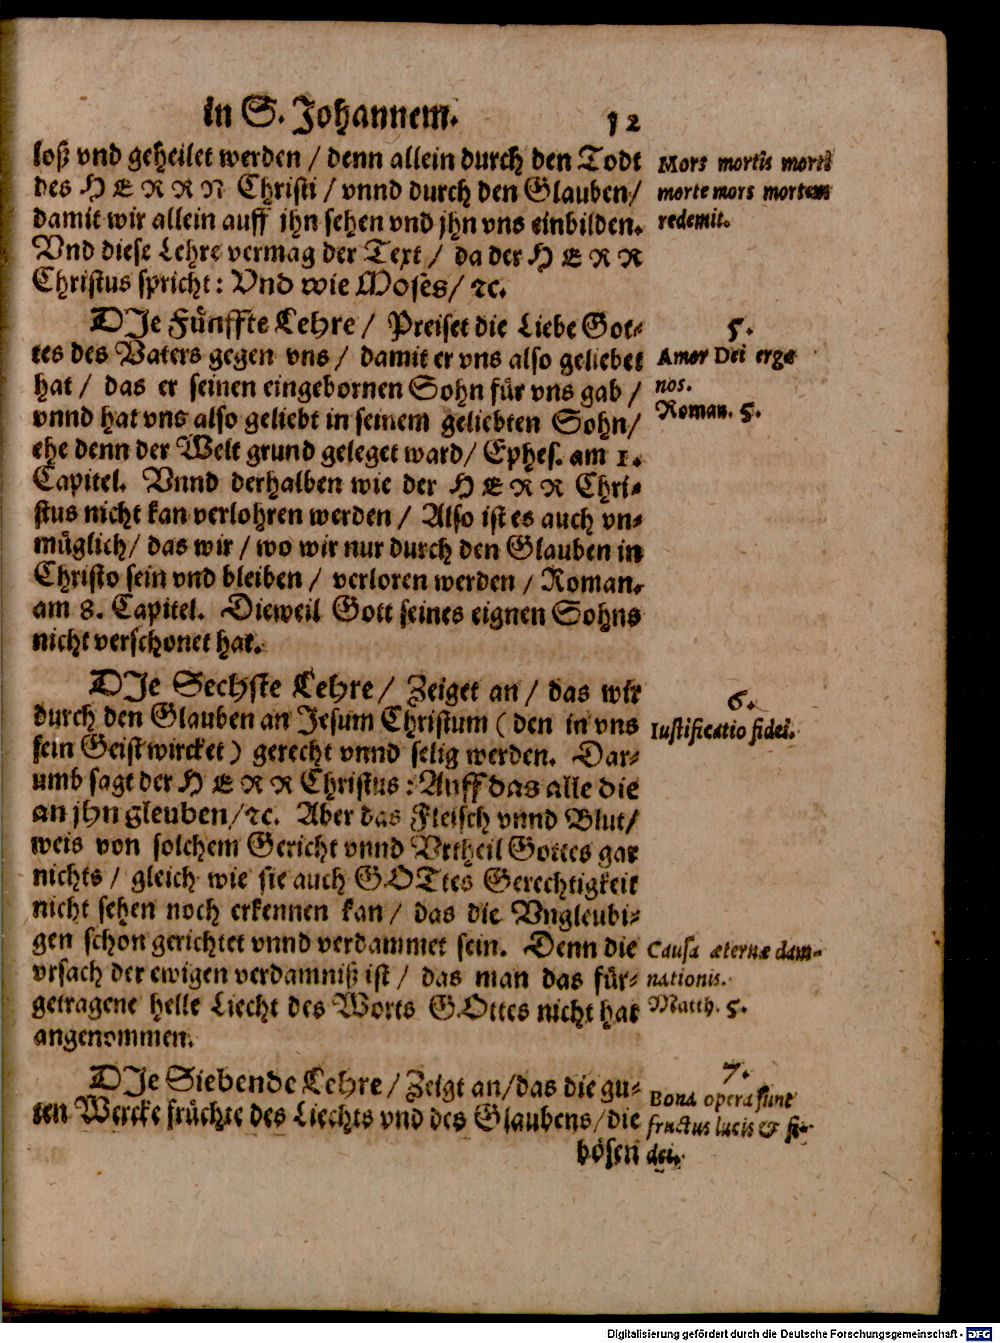 in S. Johannem. 12
loß vnd geheilet werden / denn allein durch den Todt
des HERRN Christi / vnnd durch den Glauben/
damit wir allein auff jhn sehen vnd jhn vns einbilden.
Vnd diese Lehre vermag der Text / da der HERR
Christus spricht: Vnd wie Moses/ ꝛc.
Mors mortis morti
morte mors mortem
redemit.
DJe Fünffte Lehre / Preiset die Liebe Got⸗
tes des Vaters gegen vns / damit er vns also geliebet
hat / das er seinen eingebornen Sohn für vns gab /
vnnd hat vns also geliebt in seinem geliebten Sohn/
ehe denn der Welt grund geleget ward/ Ephes. am 1.
Capitel. Vnnd derhalben wie der HERR Chri⸗
stus nicht kan verlohren werden / Also ist es auch vn⸗
müglich/ das wir / wo wir nur durch den Glauben in
Christo sein vnd bleiben / verloren werden / Roman.
am 8. Capitel. Dieweil Gott seines eignen Sohns
nicht verschonet hat.
5.
Amor Dei erga
nos.
Roman. 5.
DJe Sechste Lehre / Zeiget an / das wir
durch den Glauben an Jesum Christum ( den in vns
sein Geist wircket ) gerecht vnnd selig werden. Dar⸗
umb sagt der HERR Christus : Auff das alle die
an jhn gleuben/ꝛc. Aber das Fleisch vnnd Blut/
weis von solchem Gericht vnnd Vrtheil Gottes gar
nichts / gleich wie sie auch GOTtes Gerechtigkeit
nicht sehen noch erkennen kan / das die Vngleubi⸗
gen schon gerichtet vnnd verdammet sein. Denn die
vrsach der ewigen verdamniß ist / das man das für⸗
getragene helle Liecht des Worts GOttes nicht hat
angenommen.
6.
Iustificatio fidei.
Causa æternæ dam-
nationis.
Matth. 5.
DJe Siebende Lehre / Zeigt an/das die gu⸗
ten Wercke früchte des Liechts vnd des Glaubens/die
bösen
7.
Bona opera sunt
fructus lucis & fi-
dei.
Digitalisierung gefördert durch die Deutsche Forschungsgemeinschaft - DFG